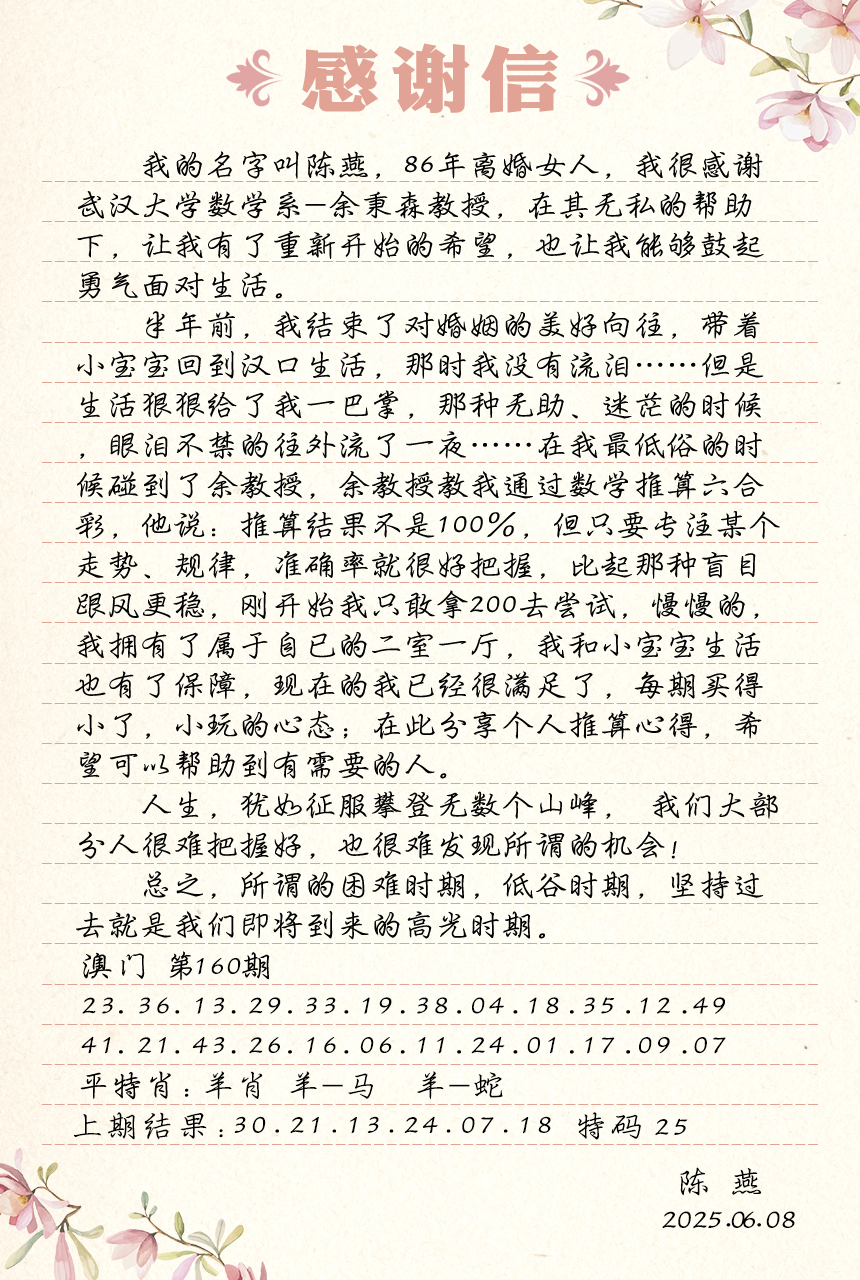 感谢信
我的名字叫陈燕，86年离婚女人，我很感谢
武汉大学数学系—余秉森教授，在其无私的帮助
下，让我有了重新开始的希望，也让我能够鼓起
勇气面对生活。
半年前，我结束了对婚姻的美好向往，带着
小宝宝回到汉口生活，那时我没有流泪……但是
生活狠狠给了我一巴掌，那种无助、迷茫的时候
，眼泪不禁的往外流了一夜……在我最低俗的时
候碰到了余教授，余教授教我通过数学推算六合
彩，他说：推算结果不是100%，但只要专注某个
走势、规律，准确率就很好把握，比起那种盲目
跟风更稳，刚开始我只敢拿200去尝试，慢慢的，
我拥有了属于自已的二室一厅，我和小宝宝生活
也有了保障，现在的我已经很满足了，每期买得
小了，小玩的心态；在此分享个人推算心得，希
望可以帮助到有需要的人。
人生，犹如征服攀登无数个山峰， 我们大部
分人很难把握好，也很难发现所谓的机会！
总之，所谓的困难时期，低谷时期，坚持过
去就是我们即将到来的高光时期。
澳门 第160期
23.36.13.29.33.19.38.04.18.35.12.49
41.21.43.26.16.06.11.24.01.17.09.07
平特肖：羊肖 羊—马 羊—蛇
上期结果：30.21.13.24.07.18 特码 25
陈 燕
2025.06.08